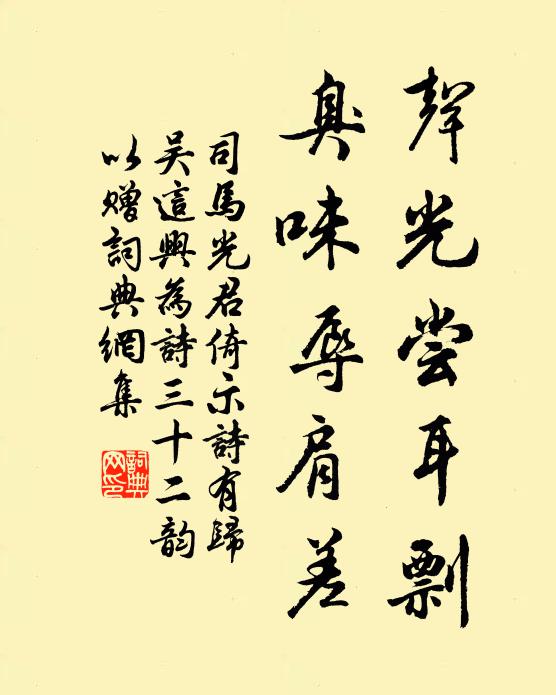 聲光嘗耳剽
臭味辱肩差
司馬光君倚示詩有歸
吳這興為詩三十二韵
以贈詞典網集
詞典网印